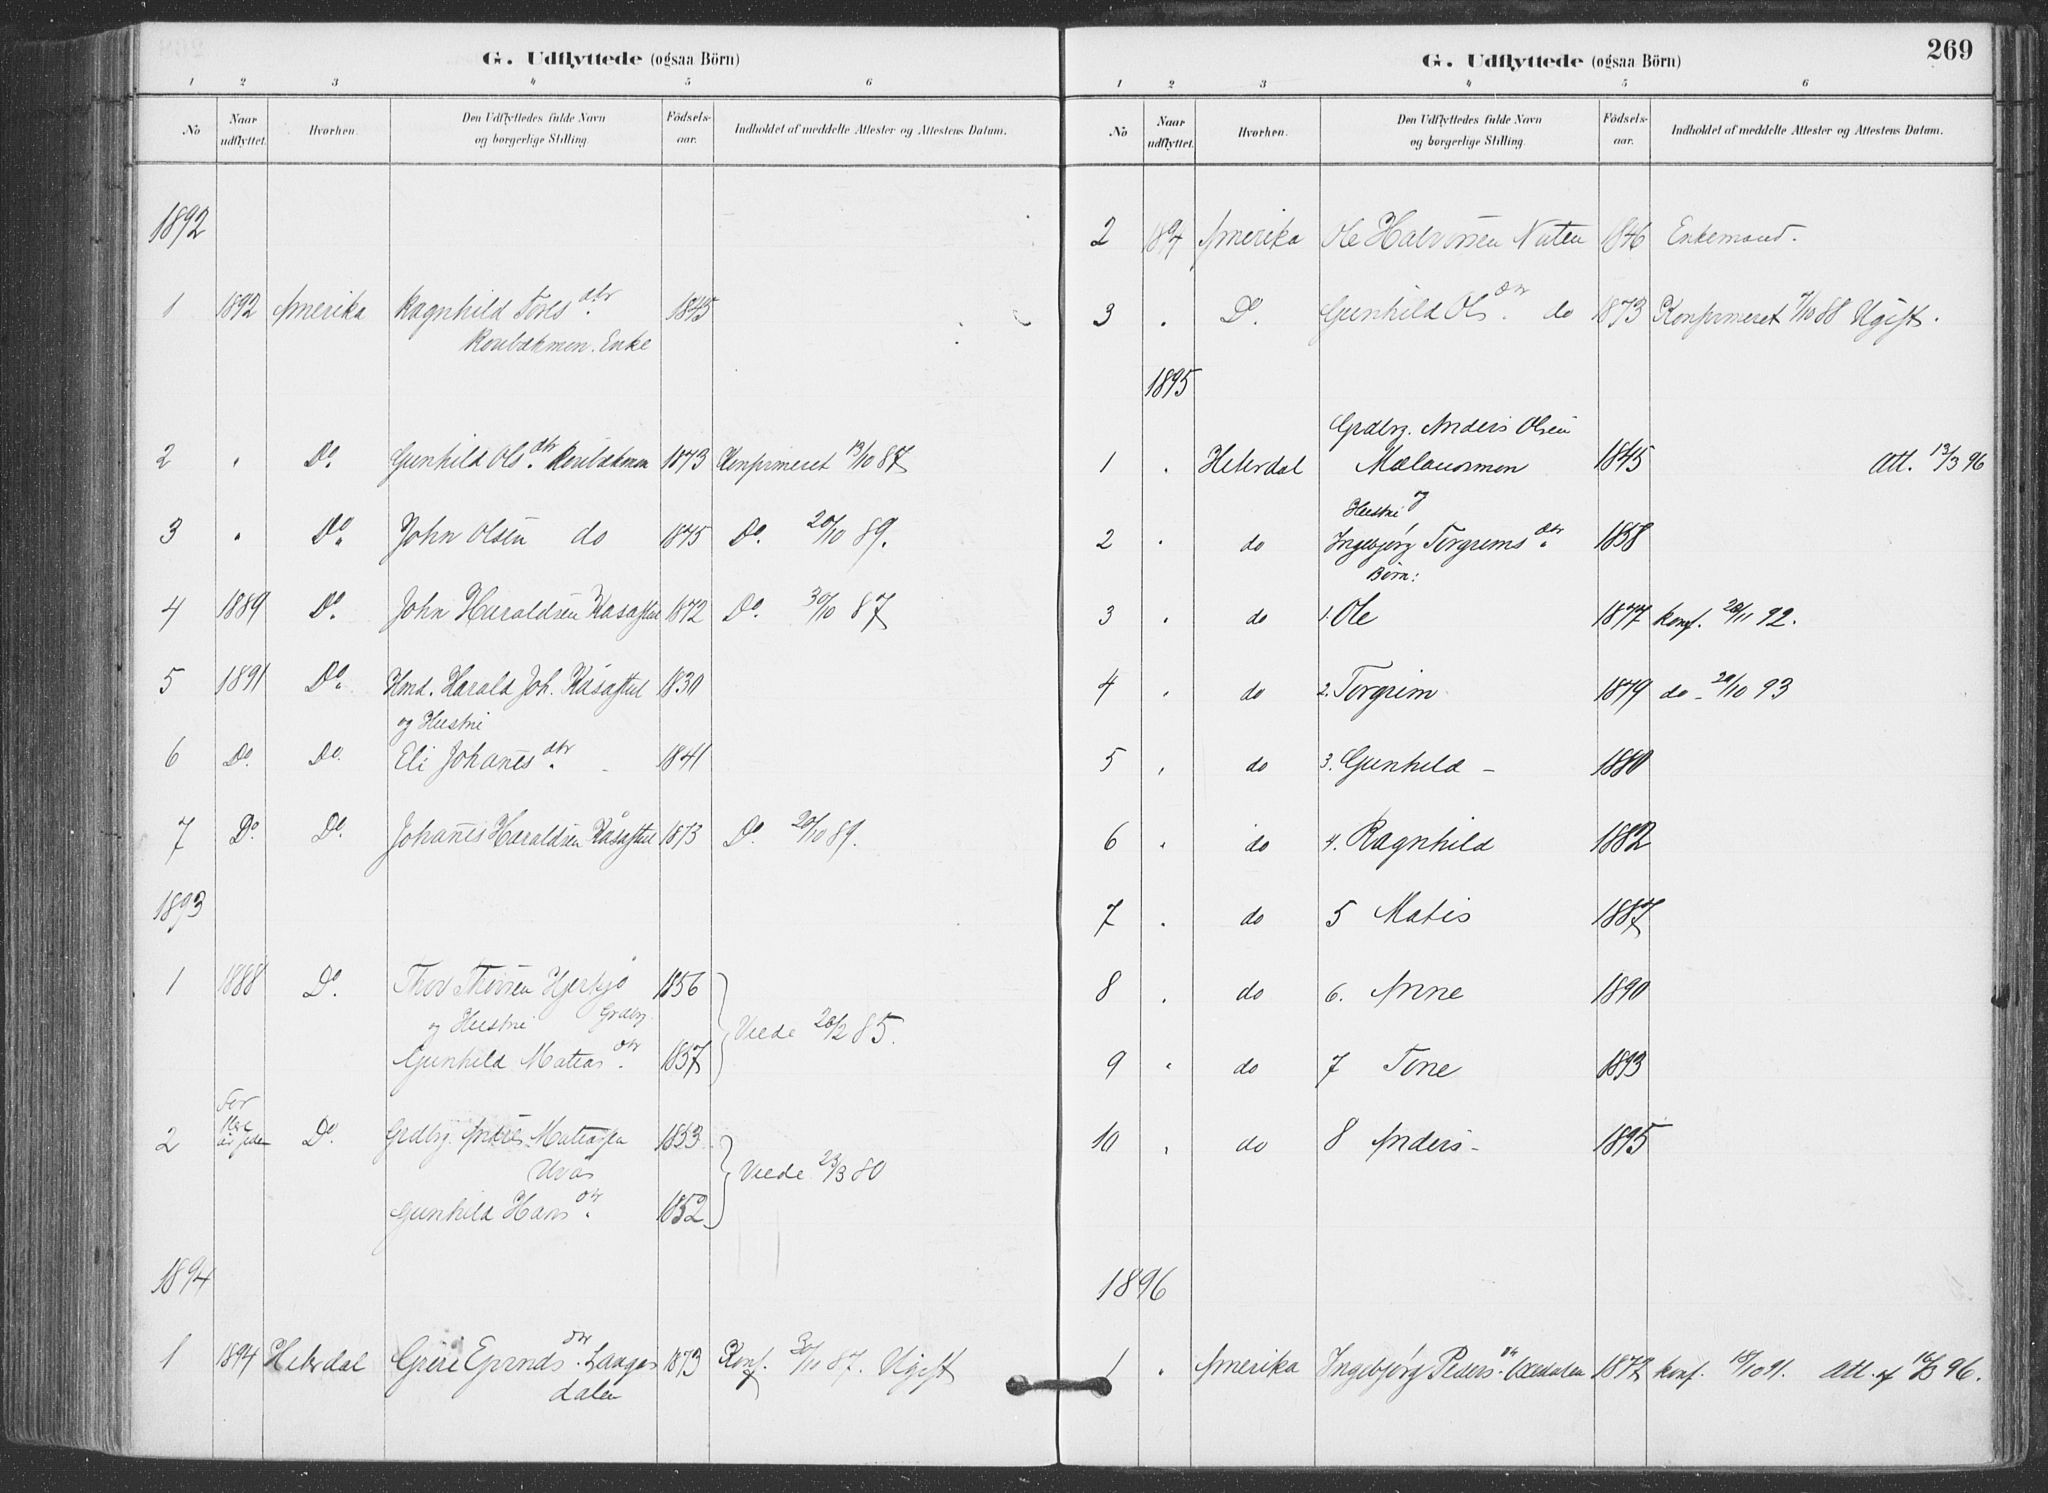 G. Udflyttede (ogsaa Börn)
1 2 3 4 5 6
No Naar udflyttet. Hvorhen. Den Udflyttedes fulde Navn og borgerlige Stilling Födsels-aar. Indholdet af meddelte Attester og Attestens Datum.
1892
1 1892 Amerika Ragnhild Tores dtr. 1845
Enke
2 " Do. Gunhild Ols dtr. 1873 Konfirmeret 13/10 87
3 " Do. John Olsen do 1875 Do. 20/10 89.
4 1889 Do. John Haraldsen 1872 Do. 30/10 87
5 1891 Do. Harald Joh. 1830
og Hustru
6 Do. Do. Eli Johanes dtr. 1841
7 Do. Do. Johanes Haraldsen 1873 Do. 20/10 89.
1893
1 1888 Do. Thov Thovsen 1856
og Hustru Grdbr.
Gunhild Matias dtr. 1857 Viede 20/2 85.
For
flere
år siden
2 Do. Grdbr. 1853
Gunhild Hans dtr. 1852 Viede 23/3 80
1894
1 1894 Hiterdal Laagas 1873 Konf. 30/10 87. Ugift
dalen
269
G. Udflyttede (ogsaa Börn)
1 2 3 4 5 6
No Naar udflyttet. Hvorhen. Den Udflyttedes fulde Navn og borgerlige Stilling Födsels-aar. Indholdet af meddelte Attester og Attestens Datum.
2 1894 Amerika Ole Halvorsen Nuten 1846 Enkemand.
3 " D. Gunhild Ols dtr. do 1873 Konfirmeret 7/10 88 Ugift.
1895
Grdbr. Anders Olsen
1 " Hiterdal 1845 Att. 13/3 96
Hustru
2 " do Ingebjørg Torgrims dtr. 1858
Børn:
3 " do 1. Ole 1877 konf. 20/11 92.
4 " do 2. Torgrim 1879 do - 29/10 93
5 " do 3. Gunhild - 1880
6 " do 4. Ragnhild 1882
7 " do 5 Matis 1887
8 " do 6. Anne 1890
9 " do 7 Tone 1893
10 " do 8 Anders - 1895
1896
1 " Amerika Ingebjørg Peders dtr. 1877 konf. 18/10 91. Att. af 96.